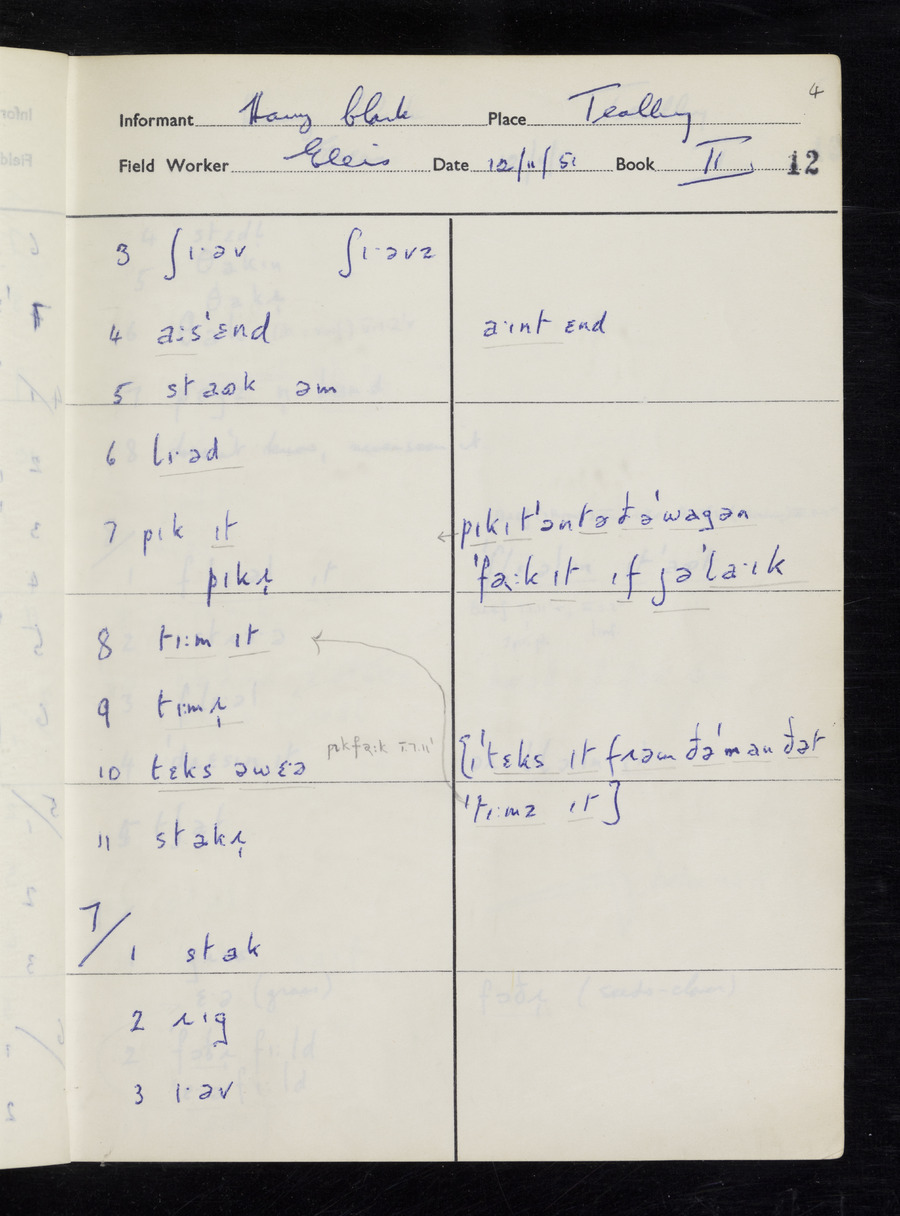 4
Informant Harry Clark Place Tealby
Field Worker Ellis Date 12/11/51 Book II 12
3 ʃɪ·əv ʃɪ·əvz
4 a:s'ɛnd a:ɪnt ɛnd
5 staʊk əm
6 lɪ·əd
7 pɪk ɪt pɪkɪt'əntəðə'wagən
pɪkɹ̩ 'fa:k ɪt ɪf jə'la·ɪk
8 tɪ:m ɪt
9 tɪmɹ̩
10 tɛks əwɛə pɪkfa:k I.7.11 [ɪ'tɛks ɪt fɹəm ðə'man ðət
'tɪ:mz ɪt]
11 stakɹ̩
7/1 stak
2 ɹɪg
3 ɪ·əv